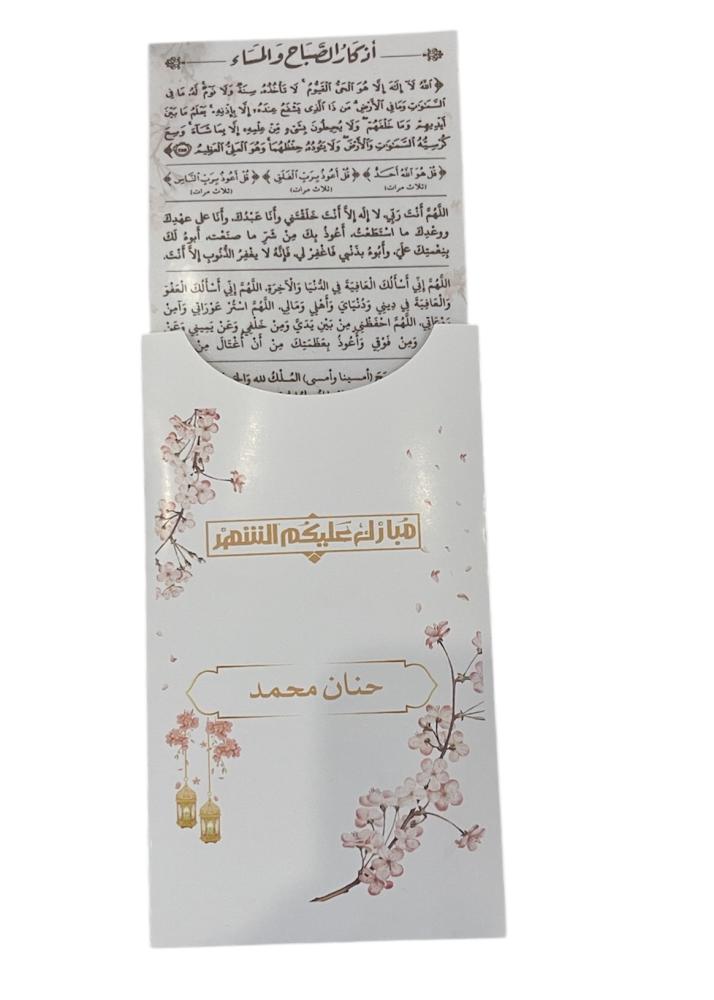 أذكار الصَّبَاح وَالمَسَاء
﴿ اللَّهُ لَآ إِلَٰهَ إِلَّا هُوَ الْحَيُّ الْقَيُّومُ ۚ لَا تَأْخُذُهُ سِنَةٌ وَلَا نَوْمٌ ۚ لَّهُ مَا فِي
السَّمَاوَاتِ وَمَا فِي الْأَرْضِ ۗ مَن ذَا الَّذِي يَشْفَعُ عِندَهُ إِلَّا بِإِذْنِهِ ۚ يَعْلَمُ مَا بَيْنَ
أَيْدِيهِمْ وَمَا خَلْفَهُمْ ۖ وَلَا يُحِيطُونَ بِشَيْءٍ مِّنْ عِلْمِهِ إِلَّا بِمَا شَاءَ ۚ وَسِعَ
كُرْسِيُّهُ السَّمَاوَاتِ وَالْأَرْضَ ۖ وَلَا يَئُودُهُ حِفْظُهُمَا ۚ وَهُوَ الْعَلِيُّ الْعَظِيمُ ﴾
﴿ قُلْ هُوَ اللَّهُ أَحَدٌ ﴾ ﴿ قُلْ أَعُوذُ بِرَبِّ الْفَلَقِ ﴾ ﴿ قُلْ أَعُوذُ بِرَبِّ النَّاسِ ﴾
(ثلاث مرات) (ثلاث مرات) (ثلاث مرات)
اللَّهُمَّ أَنْتَ رَبِّي، لا إِلَه إِلاَّ أَنْتَ خَلَقْتَني وأَنَا عَبْدُكَ، وأَنَا على عهْدِكَ
ووعْدِكَ ما اسْتَطَعْتُ، أَعُوذُ بِكَ مِنْ شَرِّ ما صنَعْت، أَبوءُ لَكَ
بِنِعْمتِكَ علَيَّ، وأَبُوءُ بذَنْبي فَاغْفِرْ لي، فَإِنَّهُ لا يغْفِرُ الذُّنُوبَ إِلاَّ أَنْتَ.
اللَّهُمَّ إِنِّي أَسْأَلُكَ الْعَافِيَةَ فِي الدُّنْيَا وَالْآخِرَةِ، اللَّهُمَّ إِنِّي أَسْأَلُكَ الْعَفْوَ
وَالْعَافِيَةَ فِي دِينِي وَدُنْيَايَ وَأَهْلِي وَمَالِي، اللَّهُمَّ اسْتُرْ عَوْرَاتِي وَآمِنْ
رَوْعَاتِي، اللَّهُمَّ احْفَظْنِي مِنْ بَيْنِ يَدَيَّ وَمِنْ خَلْفِي وَعَنْ يَمِينِي وَعَنْ
وَمِنْ فَوْقِي وَأَعُوذُ بِعَظَمَتِكَ مِنْ أَنْ أُغْتَالَ مِنْ
(أمسينا وأمسى) المُلْكُ لله
مُبارك عَليكُم الشهر
حنان محمد